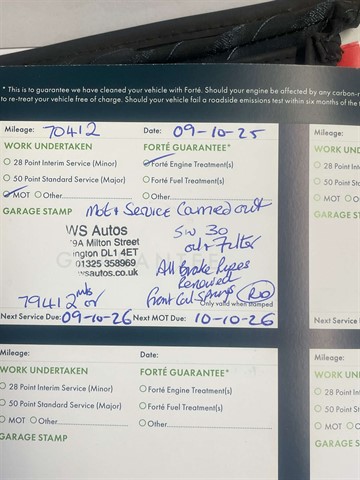 * This is to guarantee we have cleaned your vehicle with Forté. Should your engine be affected by any carbon-r
to re-treat your vehicle free of charge. Should your vehicle fail a roadside emissions test within six months of the
Mileage: 70412 Date: 09-10-25
WORK UNDERTAKEN FORTÉ GUARANTEE*
28 Point Interim Service (Minor) Forté Engine Treatment(s)
50 Point Standard Service (Major) Forté Fuel Treatment(s)
MOT Other Other
GARAGE STAMP Mot & Service Carried out
WS Autos 5w 30
9A Milton Street oil & Filter
ington DL1 4ET
01325 358969 All Brake Pipes
wsautos.co.uk Renewed
79412 mls or Front Coil Springs
Only valid when stamped
Next Service Due: 09-10-26 Next MOT Due: 10-10-26
Mileage: Date:
WORK UNDERTAKEN FORTÉ GUARANTEE*
28 Point Interim Service (Minor) Forté Engine Treatment(s)
50 Point Standard Service (Major) Forté Fuel Treatment(s)
MOT Other Other
GARAGE STAMP
Mileage:
WORK UND
28 Point In
50 Point St
MOT
GARAGE ST
Next Service
Mileage:
WORK UND
28 Point In
50 Point St
MOT
GARAGE ST